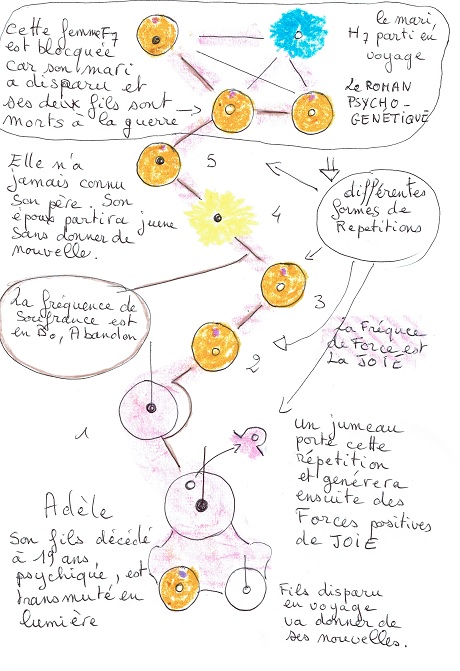 Cette femme F7
est blocquée
car son mari
a disparu et
ses deux fils sont
morts à la guerre
le mari,
H7 parti en
voyage
Le ROMAN
PSYCHO-
GENETIQUE
5
Elle n'a
jamais connu
son père. Son
époux partira jeune
sans donner de
nouvelle.
4
différentes
formes de
Repetitions
La fréquence de
Souffrance est
en B0, Abandon
3
La Fréquce
de Force est
La JOIE
2
1
un jumeau
porte cette
répétition
et genérera
ensuite des
Forces positives
de JOIE
Adèle
Son fils décédé
à 19 ans,
psychique, est
transmuté en
lumière
Fils disparu
en voyage
va donner de
ses nouvelles.